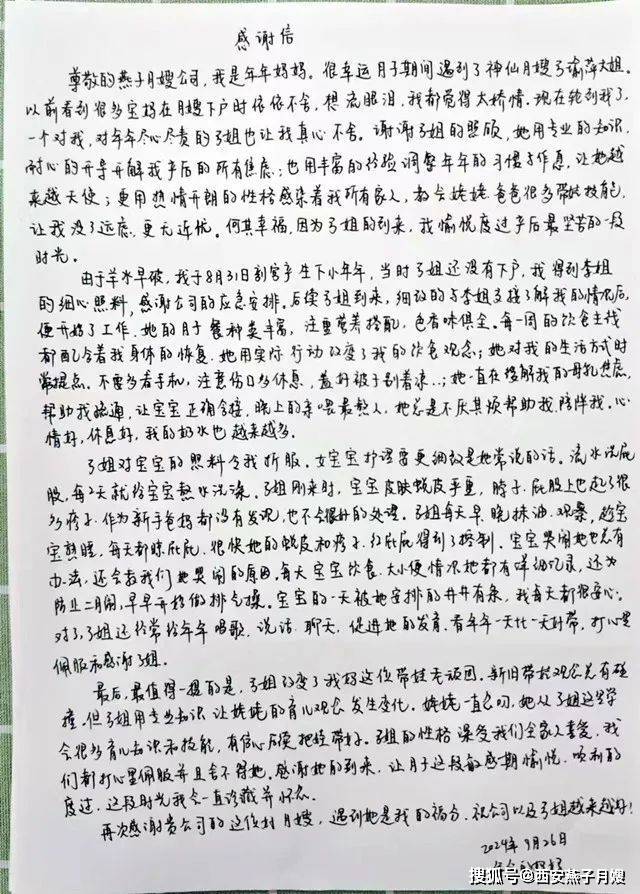 感谢信
尊敬的燕子月嫂公司,我是年年妈妈。很幸运月子期间遇到了神仙月嫂弓瑜萍大姐。
以前看到很多宝妈在月嫂下户时依依不舍,想流眼泪,我都觉得太矫情。现在轮到我了,
一个对我,对年年尽心尽责的弓姐也让我真心不舍。谢谢弓姐的照顾,她用专业的知识,
耐心的开导开解我产后的所有焦虑;也用丰富的经验调整年年的习惯与作息,让她越
来越天使;更用热情开朗的性格感染着我所有家人,教会姥姥爸爸很多带娃技能,
让我没了远虑,更无近忧。何其幸福,因为弓姐的到来,我愉悦度过产后最坚苦的一段
时光。
由于羊水早破,我于8月31日剖宫产生下小年年,当时弓姐还没有下户,我得到李姐
的细心照料,感谢公司的应急安排。后续弓姐到来,细致的与李姐交接了解我的情况后,
便开始了工作。她的月子餐种类丰富,注重营养搭配,色香味俱全。每一周的饮食主线
都配合着我身体的恢复。她用实际行动改变了我的饮食观念;她对我的生活方式时
常提点,不要多看手机,注意伤口多休息,盖好被子别着凉..;她一直在缓解我的母乳焦虑,
帮助我疏通,让宝宝正确含接,晚上的亲喂最熬人,她总是不厌其烦帮助我陪伴我。心
情好,休息好,我的奶水也越来越多。
弓姐对宝宝的照料令我折服。女宝护理需更细致是她常说的话。流水洗屁
股,每2天就给宝宝热水洗澡。弓姐刚来时,宝宝皮肤蜕皮严重,脖子、屁股上也起了很
多疹子,作为新手爸妈都没有发现,也不会很好的处理。弓姐每天早、晚抹油、观察,趁宝
宝熟睡,每天都晾屁屁,很快她的蜕皮和疹子、红屁屁得到了控制。宝宝哭闹她总有
办法,还会教我们她哭闹的原因。每天宝宝饮食、大小便情况她都有详细记录,还为
防止二月闹,早早开始做排气操。宝宝的一天被她安排的井井有条,我每天都很安心。
对了,弓姐还经常给年年唱歌、说话、聊天,促进她的发育。看年年一天比一天好带,打心里
佩服和感谢弓姐。
最后,最值得一提的是,弓姐改变了我妈这位带娃老顽固。新旧带娃观念总有碰
撞,但弓姐用专业知识让姥姥的育儿观念发生变化。姥姥一直念叨,她从弓姐这里学
会很多育儿知识和技能,有信心后续把娃带好。弓姐的性格深受我们全家人喜爱,我
们都打心里佩服并且舍不得她。感谢她的到来,让月子这段敏感期愉悦、顺利的
度过,这段时光我会一直珍藏并怀念。
再次感谢贵公司的这位好月嫂,遇到她是我的福分。祝公司以及弓姐越来越好!
2024年9月26日
年年的妈妈
搜狐号@西安燕子月嫂